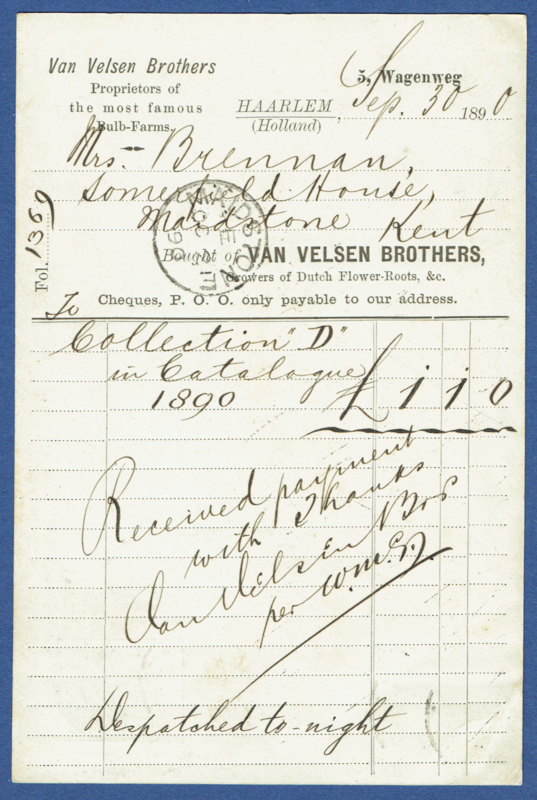 Van Velsen Brothers
Proprietors of
the most famous
Bulb-Farms.
5, Wagenweg
HAARLEM
(Holland), Sep. 30 1890
Mrs. Brennan,
Somerfield House,
Maidstone Kent
MAIDSTONE
Fol. 1369
Bought of VAN VELSEN BROTHERS,
Growers of Dutch Flower-Roots, &c.
Cheques, P. O. O. only payable to our address.
To
Collection "D"
in Catalogue
1890 £ 1 1 0
Received payment
with Thanks
Van Velsen Bros
per W. McD.
Despatched to-night